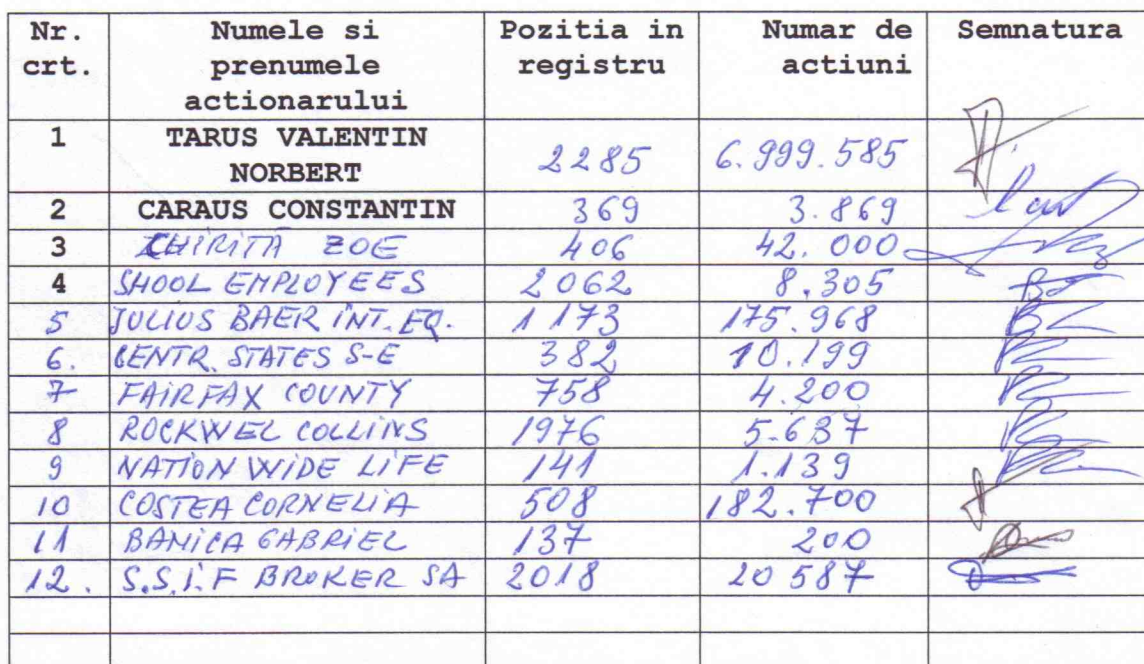 Nr. crt. Numele si prenumele actionarului Pozitia in registru Numar de actiuni Semnatura
1 TARUS VALENTIN NORBERT 2285 6.999.585
2 CARAUS CONSTANTIN 369 3.869
3 CHIRITĂ ZOE 406 42.000
4 SHOOL EMPLOYEES 2062 8.305
5 JULIUS BAER INT. EQ. 1173 175.968
6. CENTR. STATES S-E 382 10.199
7 FAIRFAX COUNTY 758 4.200
8 ROCKWEL COLLINS 1976 5.637
9 NATION WIDE LIFE 141 1.139
10 COSTEA CORNELIA 508 182.700
11 BANICA GABRIEL 137 200
12. S.S.I.F BROKER SA 2018 20 587